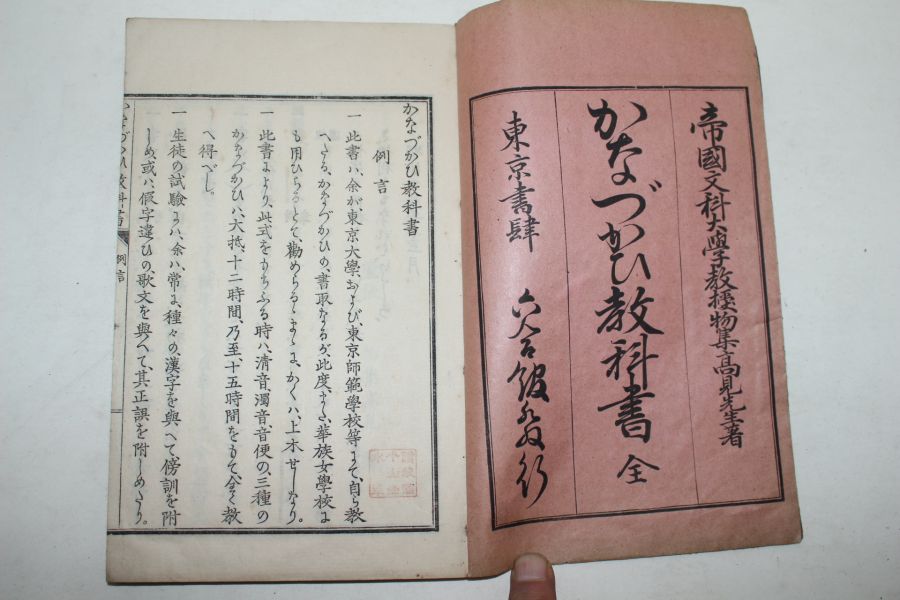 帝國文科大學教授物集高見先生著
かなづかひ教科書 全
東京書肆 六合館發行
かなづかひ教科書
例言
一 此書ハ、余が東京大學、および、東京師範學校等にて、自ら教
へたる、かなづかひの、書取なるが、此度、また、華族女學校に
も用ひらるゝとて、勸めらるゝまゝに、かくハ、上木せしなり。
一 此書により、此式をもちふる時ハ、清音、濁音、音便の、三種の
かなづかひハ、大抵、十二時間、乃至、十五時間をもて、全く教
へ得べし。
一 生徒の試驗にハ、余ハ、常に、種々の、漢字を與へて、傍訓を附
しめ、或ハ、假字違ひの、歌文を與へて、其正誤を附しめたり。
かなづかひ教科書 例言